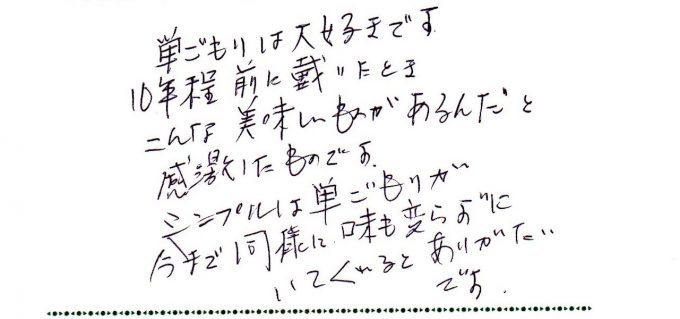 巣ごもりは大好きです
10年程前に戴いたとき
こんな美味しいものがあるんだと
感激したものです
シンプルは巣ごもりが
今まで同様に味も変らずに
いてくれるとありがたい
です.